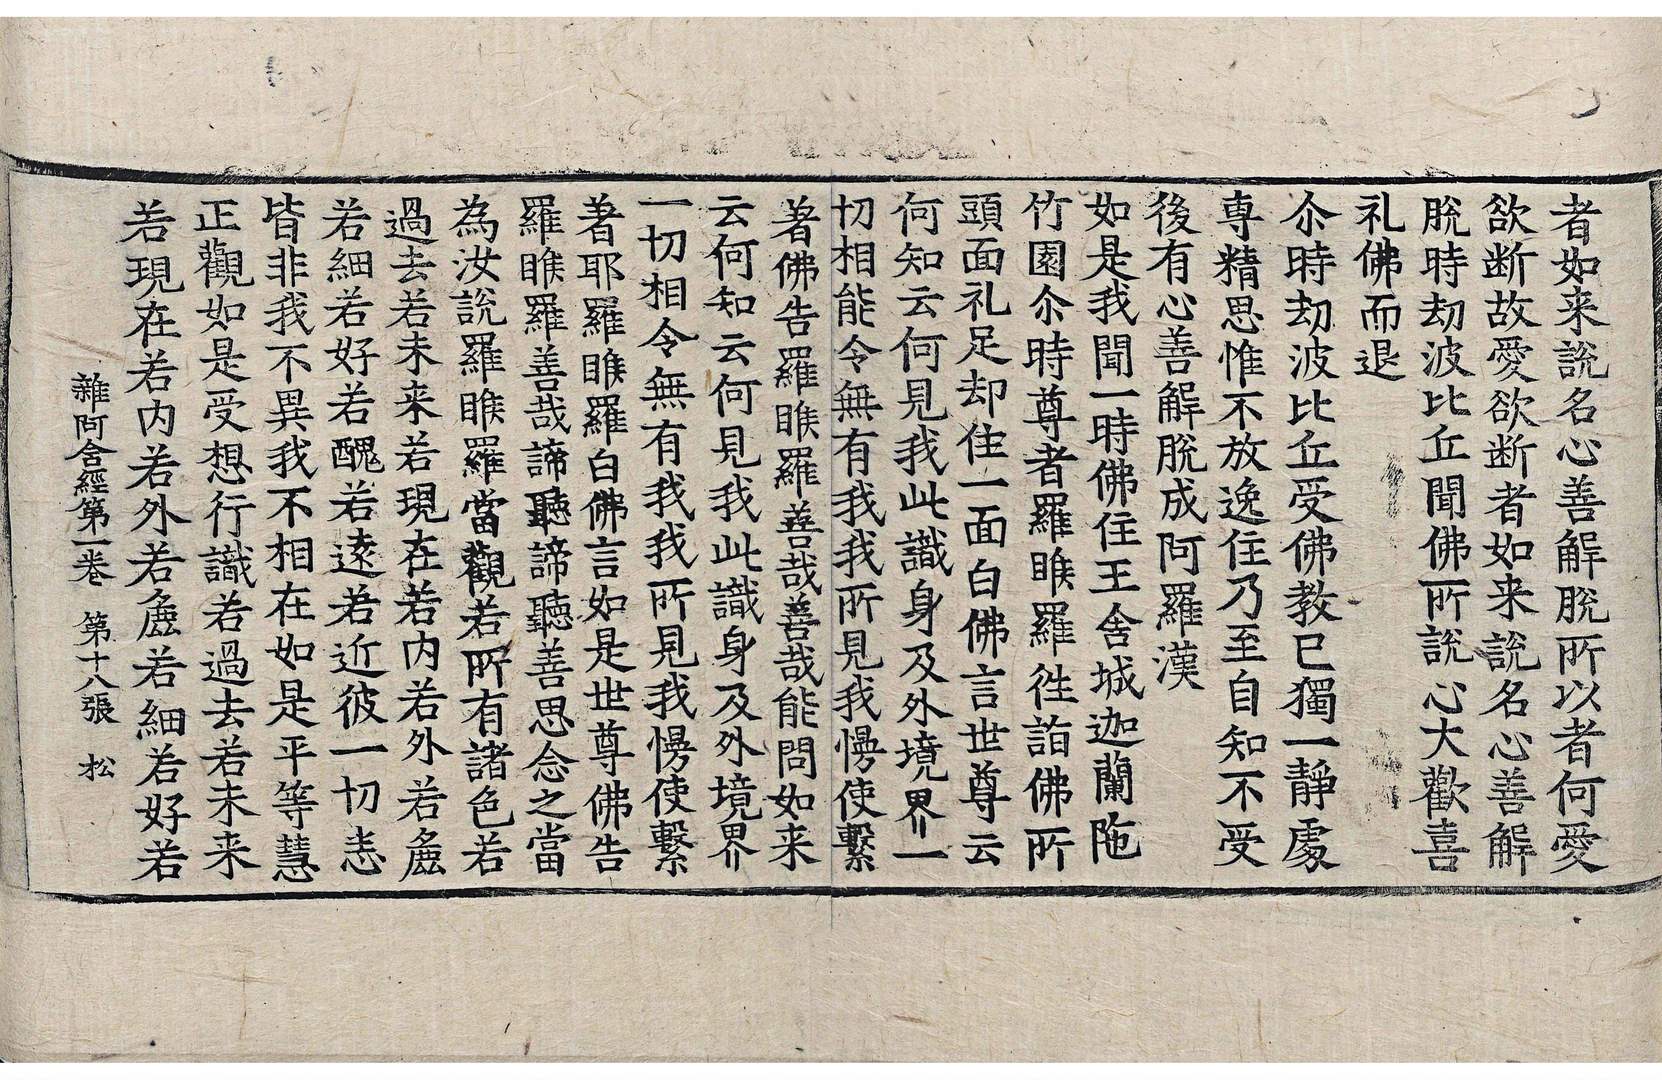 者如来說名心善解脫所以者何愛
欲断故愛欲断者如来說名心善解
脫時劫波比丘聞佛所說心大歡喜
礼佛而退
尒時劫波比丘受佛教已獨一靜處
専精思惟不放逸住乃至自知不受
後有心善解脫成阿羅漢
如是我聞一時佛住王舍城迦蘭陁
竹園尒時尊者羅睺羅徃詣佛所
頭面礼足却住一面白佛言世尊云
何知云何見我此識身及外境界一
切相能令無有我我所見我慢使繫
著佛告羅睺羅善哉善哉能問如来
云何知云何見我此識身及外境界
一切相令無有我我所見我慢使繫
著耶羅睺羅白佛言如是世尊佛告
羅睺羅善哉諦聽諦聽善思念之當
為汝說羅睺羅當觀若所有諸色若
過去若未来若現在若内若外若麁
若細若好若醜若遠若近彼一切悉
皆非我不異我不相在如是平等慧
正觀如是受想行識若過去若未来
若現在若内若外若麁若細若好若
雜阿含經第一卷 第十八張 松